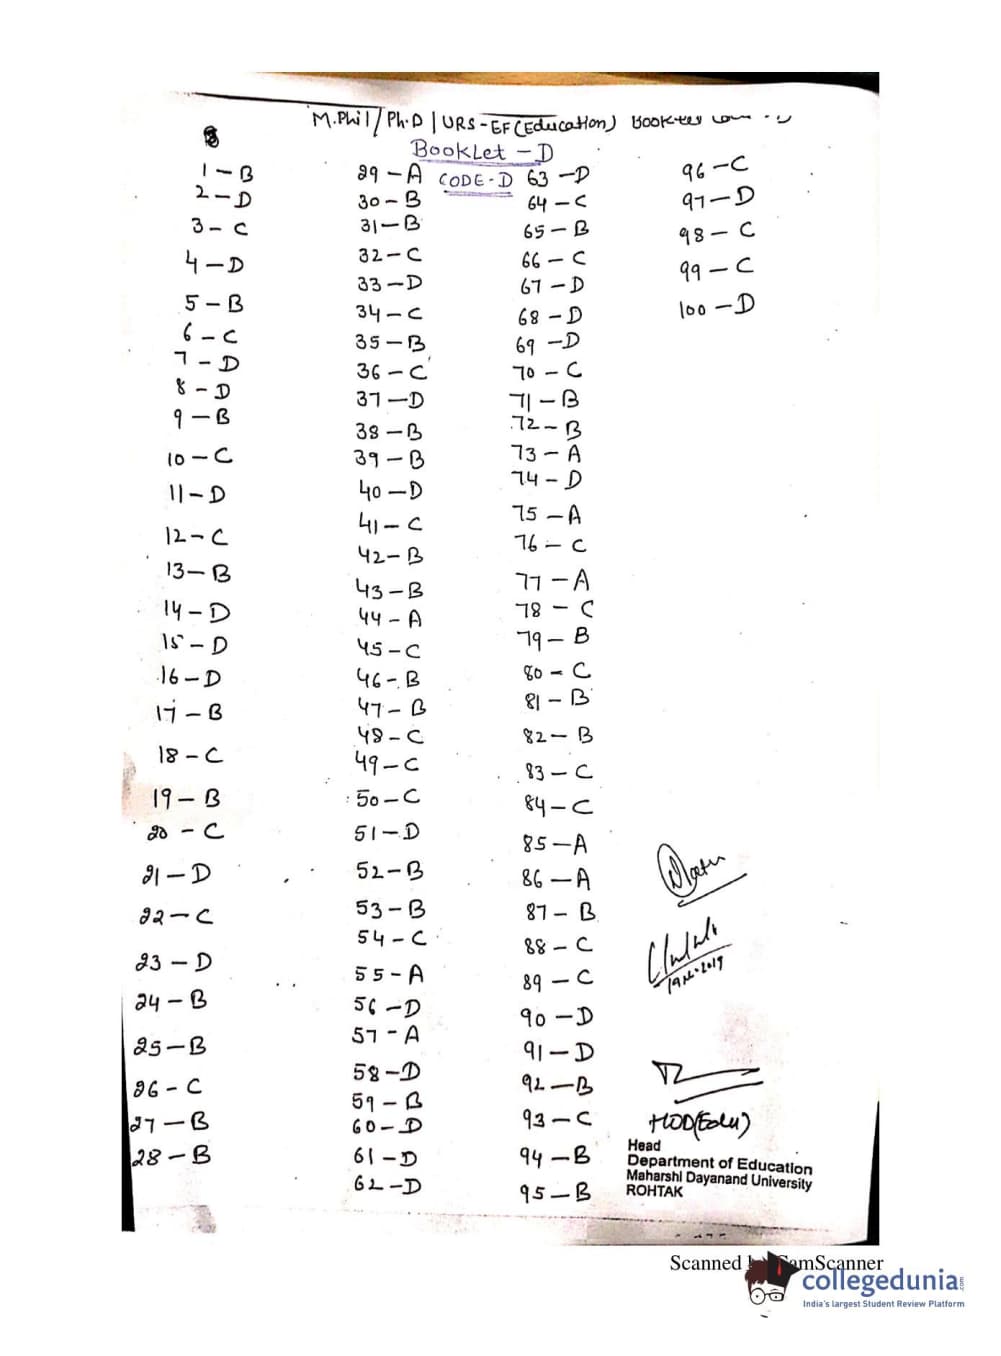 M.Phil/Ph.D/URS-EF(Education) Booklet
Booklet - D
CODE-D
1 - B
2 - D
3 - C
4 - D
5 - B
6 - C
7 - D
8 - D
9 - B
10 - C
11 - D
12 - C
13 - B
14 - D
15 - D
16 - D
17 - B
18 - C
19 - B
20 - C
21 - D
22 - C
23 - D
24 - B
25 - B
26 - C
27 - B
28 - B
29 - A
30 - B
31 - B
32 - C
33 - D
34 - C
35 - B
36 - C
37 - D
38 - B
39 - B
40 - D
41 - C
42 - B
43 - B
44 - A
45 - C
46 - B
47 - B
48 - C
49 - C
50 - C
51 - D
52 - B
53 - B
54 - C
55 - A
56 - D
57 - A
58 - D
59 - B
60 - D
61 - D
62 - D
63 - D
64 - C
65 - B
66 - C
67 - D
68 - D
69 - D
70 - C
71 - B
72 - B
73 - A
74 - D
75 - A
76 - C
77 - A
78 - C
79 - B
80 - C
81 - B
82 - B
83 - C
84 - C
85 - A
86 - A
87 - B
88 - C
89 - C
90 - D
91 - D
92 - B
93 - C
94 - B
95 - B
96 - C
97 - D
98 - C
99 - C
100 - D
HOD(Edu)
Head
Department of Education
Maharshi Dayanand University
ROHTAK
Scanned CamScanner
collegedunia.com
India's largest Student Review Platform